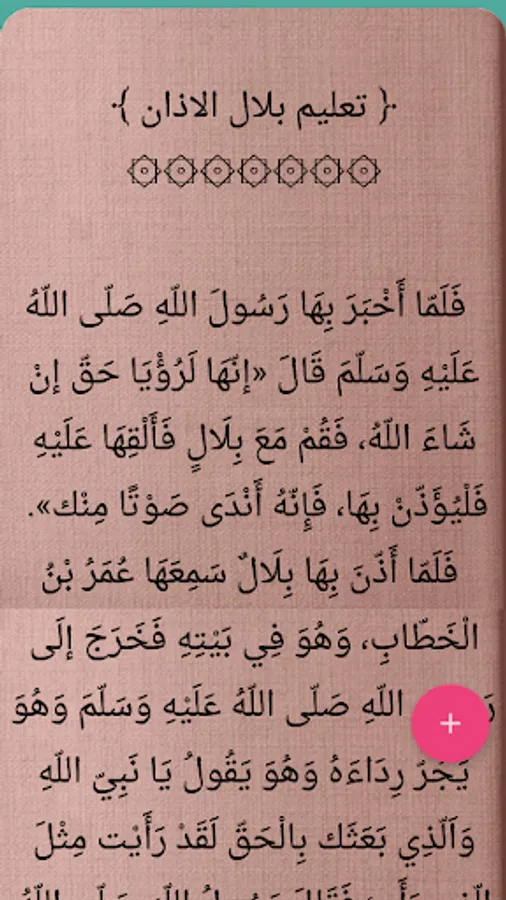 ﴿ تعليم بلال الاذان ﴾
۞۞۞۞۞۞۞
فَلَمّا أَخْبَرَ بِهَا رَسُولَ اللّهِ صَلّى اللّهُ
عَلَيْهِ وَسَلّمَ قَالَ «إنّهَا لَرُؤْيَا حَقّ إنْ
شَاءَ اللّهُ، فَقُمْ مَعَ بِلَالٍ فَأَلْقِهَا عَلَيْهِ
فَلْيُؤَذّنْ بِهَا، فَإِنّهُ أَنْدَى صَوْتًا مِنْك».
فَلَمّا أَذّنَ بِهَا بِلَالٌ سَمِعَهَا عُمَرُ بْنُ
الْخَطّابِ، وَهُوَ فِي بَيْتِهِ فَخَرَجَ إلَى
اللّهِ صَلّى اللّهُ عَلَيْهِ وَسَلّمَ وَهُوَ
يَجُرّ رِدَاءَهُ وَهُوَ يَقُولُ يَا نَبِيّ اللّهِ
وَاَلّذِي بَعَثَك بِالْحَقّ لَقَدْ رَأَيْت مِثْلَ